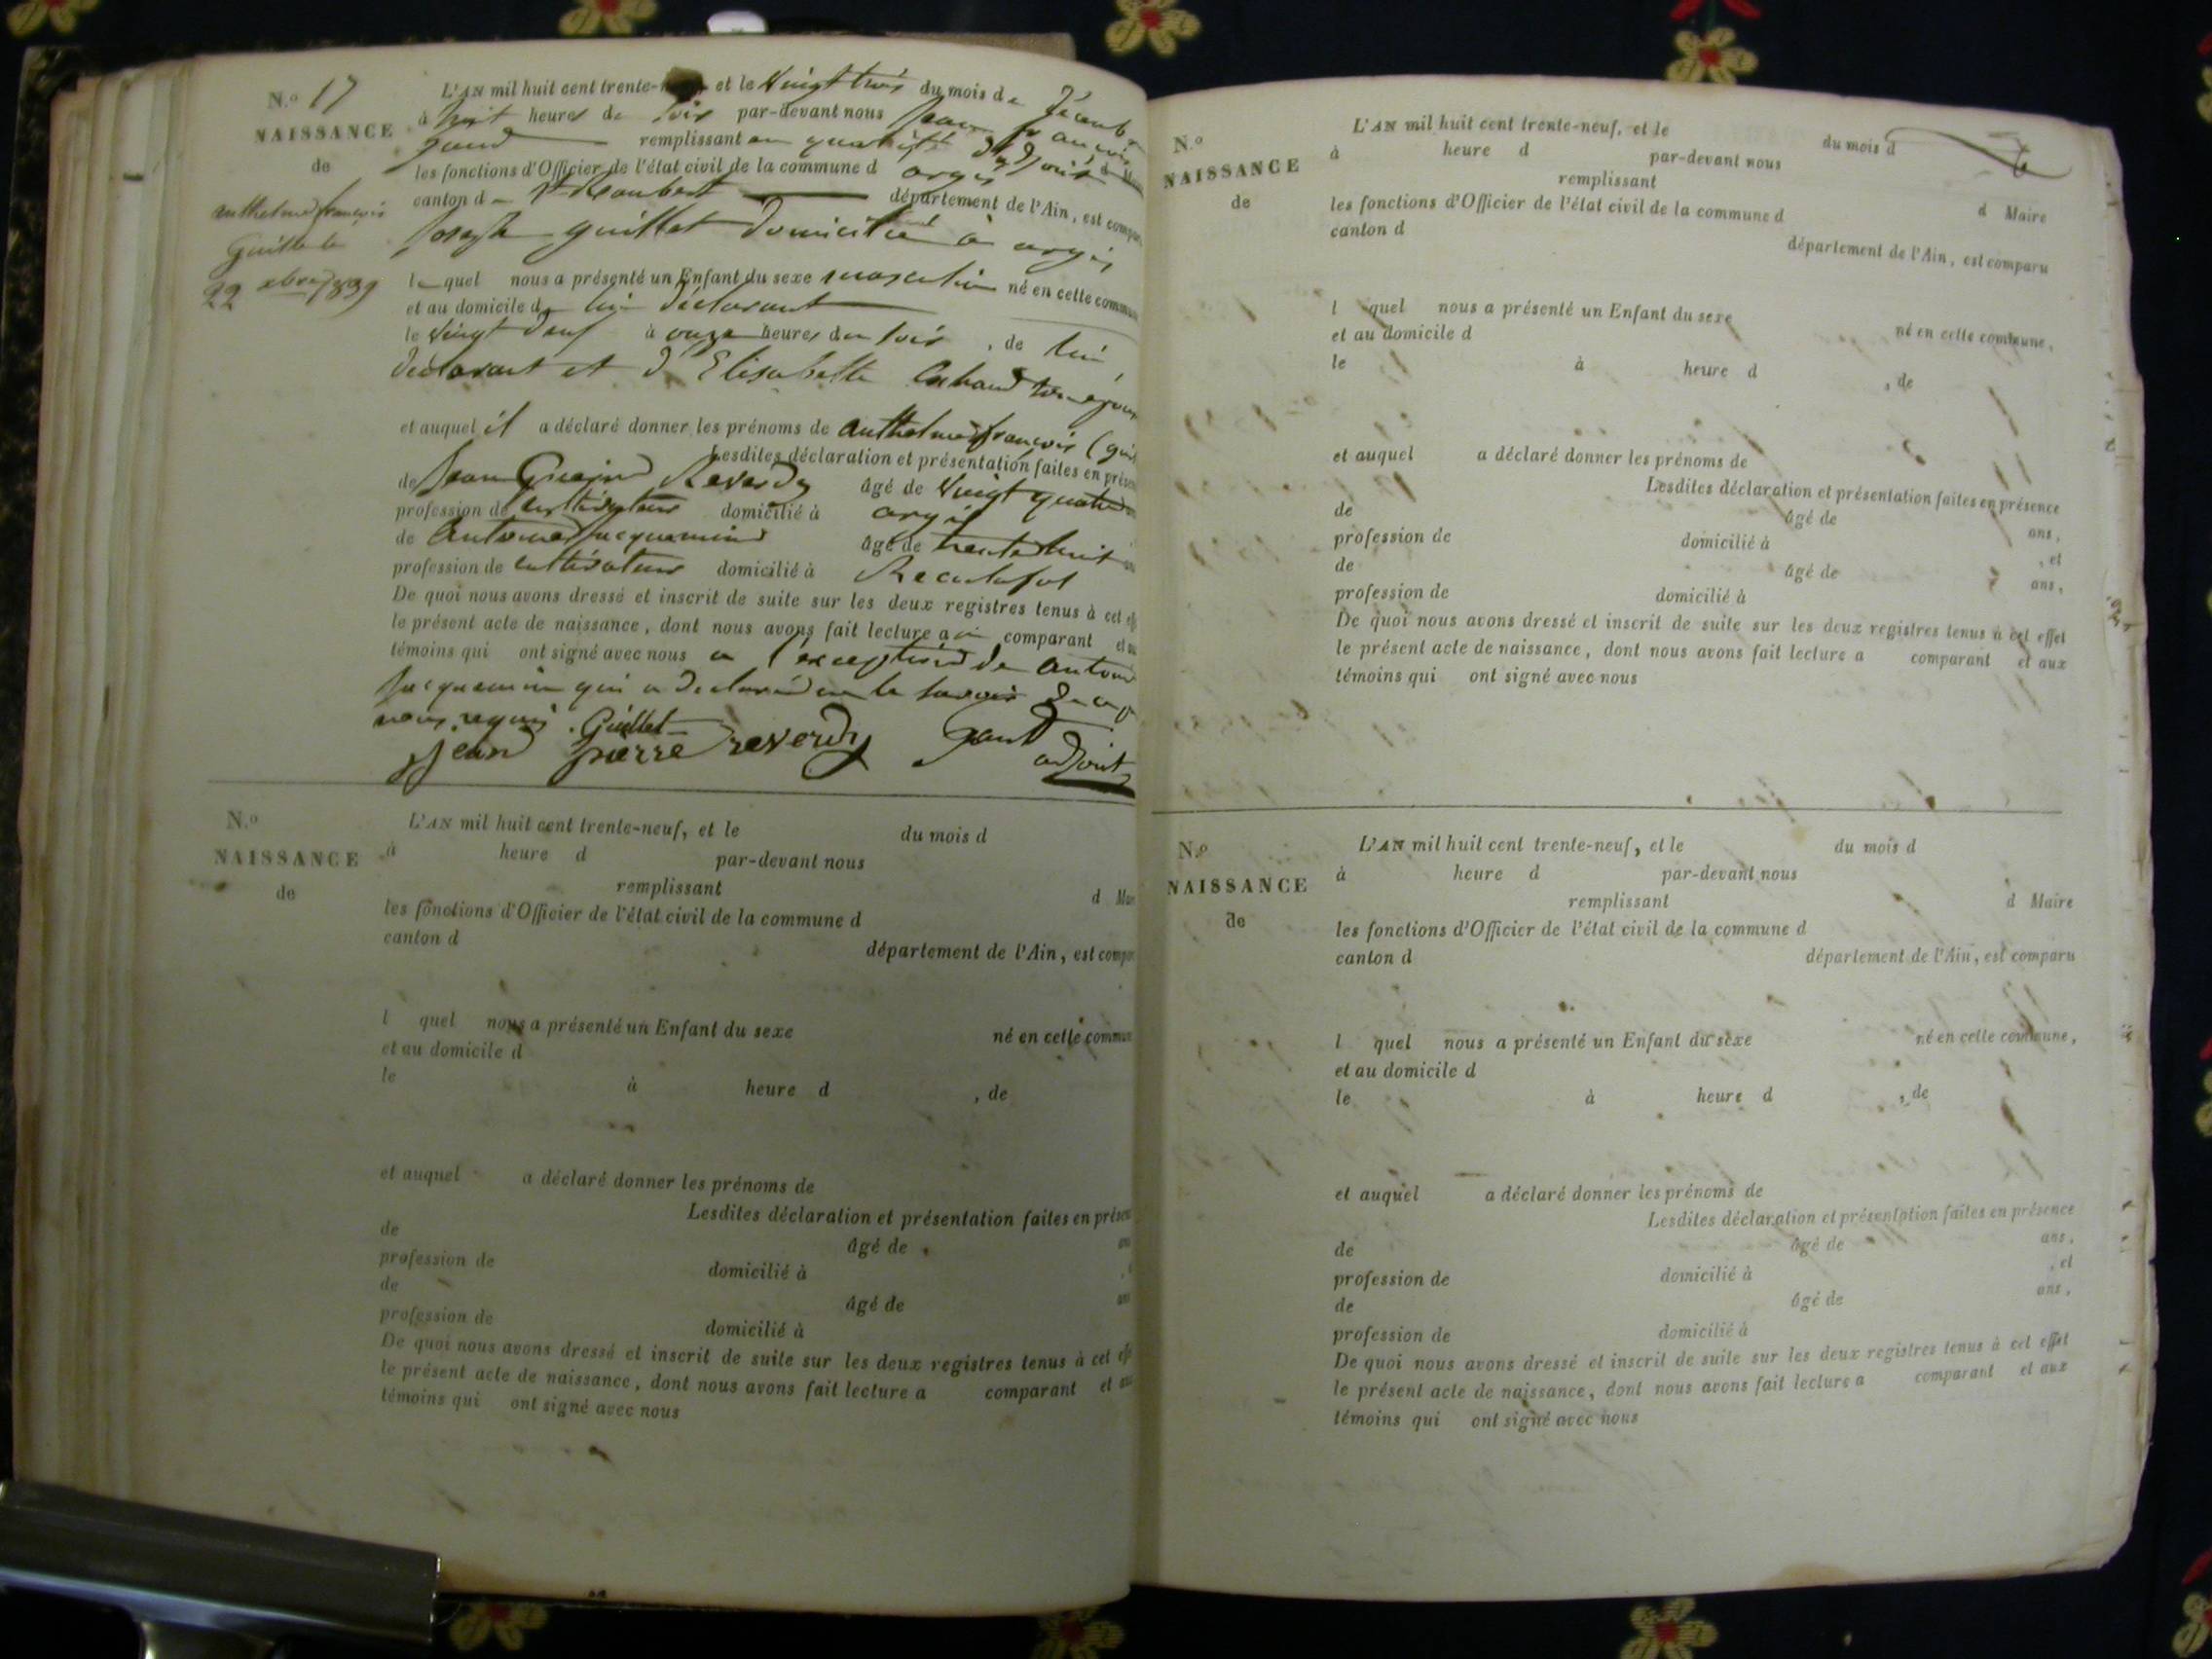 N.º 17
NAISSANCE
de
anthelme françois
Guillet le
22 xbre 1839
L'AN mil huit cent trente- et le Vingt trois du mois de
à huit heures du soir par-devant nous Jean françois
gand remplissant en qualité d'adjoint d
les fonctions d'Officier de l'état civil de la commune d argis
canton de St Rambert département de l'Ain, est
joseph guillet domicilié à argis
lequel nous a présenté un Enfant du sexe masculin né en cette
et au domicile de lui déclarant
le Vingt deux à onze heures du soir , de lui
déclarant et d'Elisabette
et auquel il a déclaré donner les prénoms de anthelme françois
Lesdites déclaration et présentation faites en
de Jean Reverdy âgé de Vingt quatre
profession de cultivateur domicilié à argis
de antoine jacquemin âgé de trente huit
profession de cultivateur domicilié à
De quoi nous avons dressé et inscrit de suite sur les deux registres tenus à cet
le présent acte de naissance, dont nous avons fait lecture au comparant et
témoins qui ont signé avec nous a l'exception de antoine
jacquemin qui a declaré ne le savoir de ce
nous requis. Guillet
jean pierre reverdy gand
adjoint
N.º
NAISSANCE
de
L'AN mil huit cent trente-neuf, et le du mois d
à heure d par-devant nous
remplissant d
les fonctions d'Officier de l'état civil de la commune d
canton d
département de l'Ain, est
l quel nous a présenté un Enfant du sexe né en cette
et au domicile d
le à heure d , de
et auquel a déclaré donner les prénoms de
Lesdites déclaration et présentation faites en
de âgé de
profession de domicilié à
de âgé de
profession de domicilié à
De quoi nous avons dressé et inscrit de suite sur les deux registres tenus à cet
le présent acte de naissance, dont nous avons fait lecture a comparant et
témoins qui ont signé avec nous
N.º
NAISSANCE
de
L'AN mil huit cent trente-neuf, et le du mois d
à heure d par-devant nous
remplissant d Maire
les fonctions d'Officier de l'état civil de la commune d
canton d
département de l'Ain, est comparu
l quel nous a présenté un Enfant du sexe né en cette commune,
et au domicile d
le à heure d , de
et auquel a déclaré donner les prénoms de
Lesdites déclaration et présentation faites en présence
de âgé de ans,
profession de domicilié à , et
de âgé de ans,
profession de domicilié à
De quoi nous avons dressé et inscrit de suite sur les deux registres tenus à cet effet
le présent acte de naissance, dont nous avons fait lecture a comparant et aux
témoins qui ont signé avec nous
N.º
NAISSANCE
de
L'AN mil huit cent trente-neuf, et le du mois d
à heure d par-devant nous
remplissant d Maire
les fonctions d'Officier de l'état civil de la commune d
canton d département de l'Ain, est comparu
l quel nous a présenté un Enfant du sexe né en cette commune,
et au domicile d
le à heure d , de
et auquel a déclaré donner les prénoms de
Lesdites déclaration et présentation faites en présence
de âgé de ans,
profession de domicilié à , et
de âgé de ans,
profession de domicilié à
De quoi nous avons dressé et inscrit de suite sur les deux registres tenus à cet effet
le présent acte de naissance, dont nous avons fait lecture a comparant et aux
témoins qui ont signé avec nous